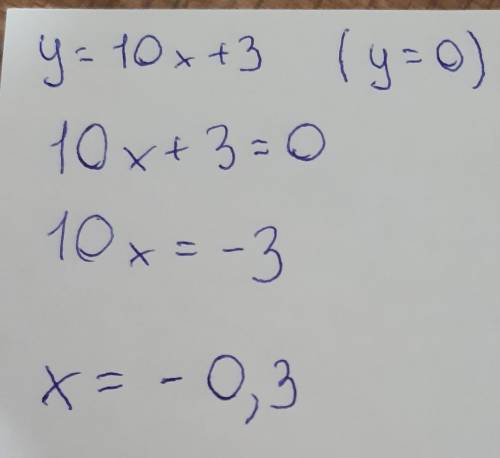 y = 10x + 3 (y = 0)
10x + 3 = 0
10x = - 3
x = - 0,3